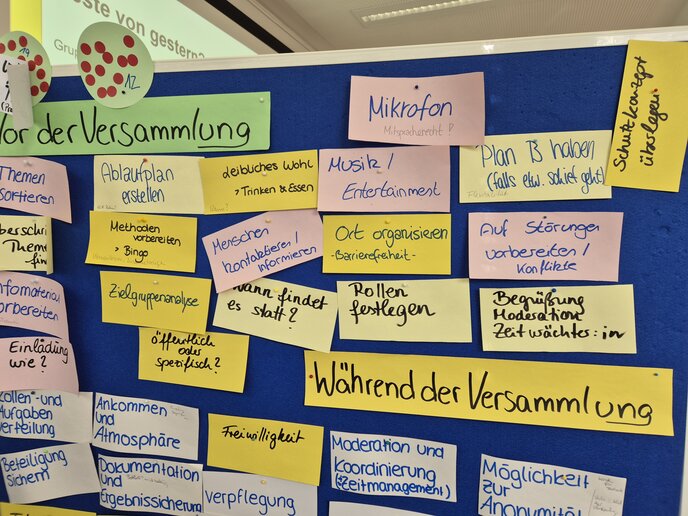 ste von gestern?
Gru
19
12
Vor der Versammlung
Mikrofon
Mitspracherecht?
Schutzkonzept
überlegen
Themen
sortieren
Ablaufplan
erstellen
leibliches Wohl
> Trinken & Essen
Musik /
Entertainment
Plan B haben
(falls etw. schief geht)
Überschrif
Theme
fin
Methoden
vorbereiten
> Bingo
Menschen
kontaktieren /
informieren
Ort organisieren
-Barrierefreiheit-
Auf Störungen
vorbereiten /
Konflikte
Infomaterial
vorbereiten
Zielgruppenanalyse
Wann findet
es statt?
Rollen
festlegen
Begrüßung
Moderation
Zeitwächter:in
Einladung
wie?
öffentlich
oder
spezifisch?
Während der Versammlung
Rollen- und
Aufgaben
verteilung
Ankommen
und
Atmosphäre
Freiwilligkeit
Moderation und
Koordinierung
(+ Zeitmanagement)
Beteiligung
sichern
Dokumentation
und
Ergebnissicherung
Verpflegung
Möglichkeit
zur
Anonymität